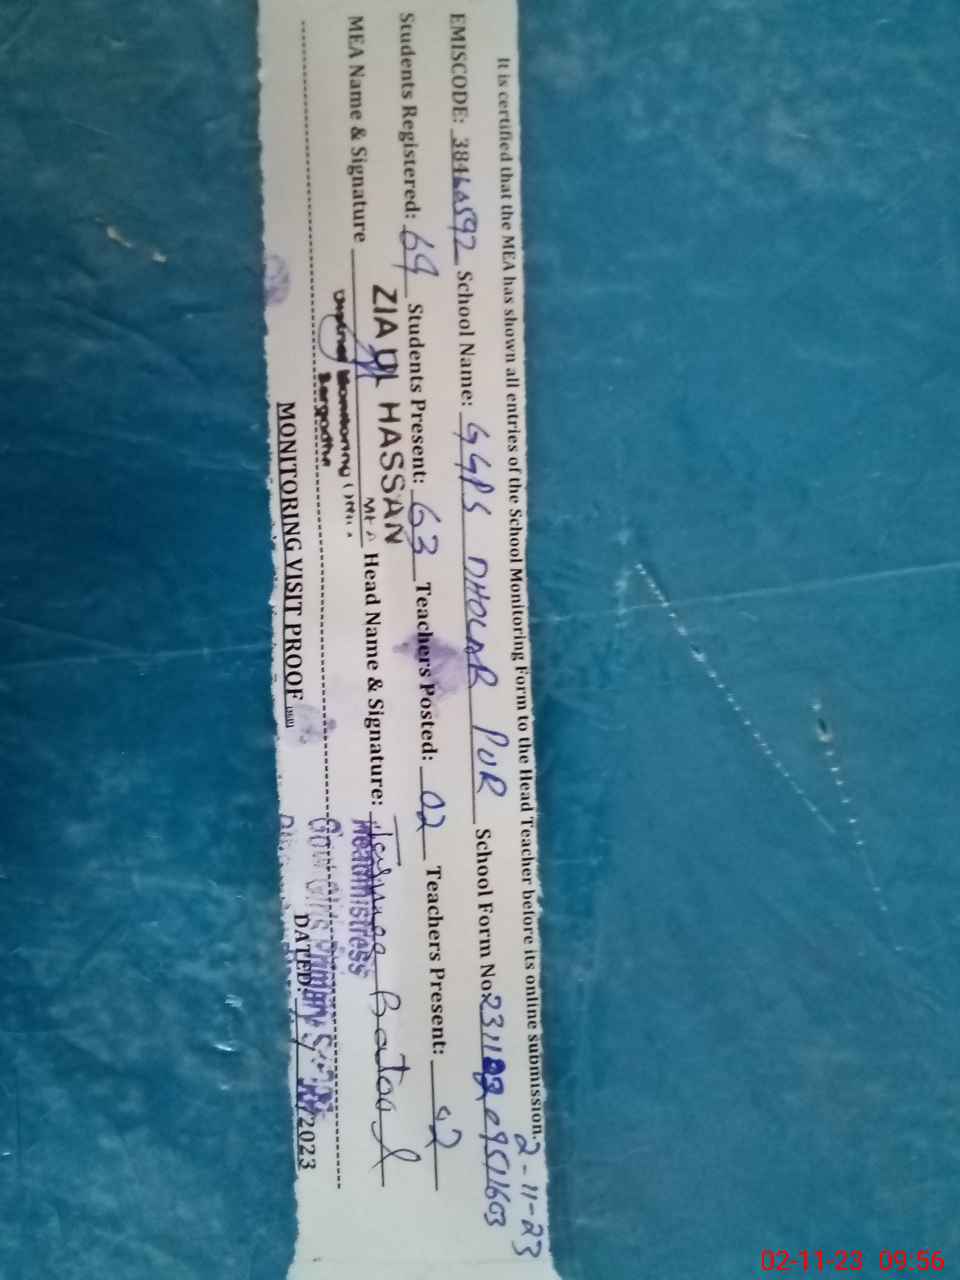 It is certified that the MEA has shown all entries of the School Monitoring Form to the Head Teacher before its online submission. 2-11-23
EMISCODE: 38460592 School Name: GGPS DHOLAR PUR School Form No.
Students Registered: 69 Students Present: 63 Teachers Posted: 02 Teachers Present: 02
MEA Name & Signature ZIA UL HASSAN MEA Head Name & Signature: Batool
District Monitoring
Sargodha
Headmistress
Govt Girls Primary
MONITORING VISIT PROOF DATED: /2023
02-11-23 09:56